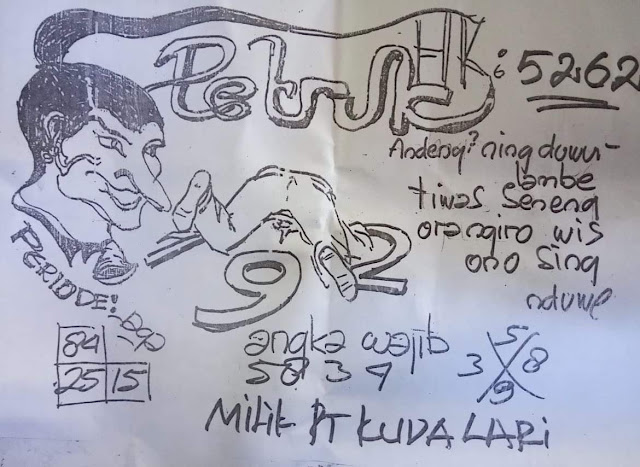 Petruk HK 6 : 5262
Andeng? ning duwur
lambe
tiwas seneng
orangiro wis
ono sing
nduwe
PERIODE!
92
84
25 15
angka wajib
5 8 3 4
5
3 8
9
Milik PT KUDA LARi